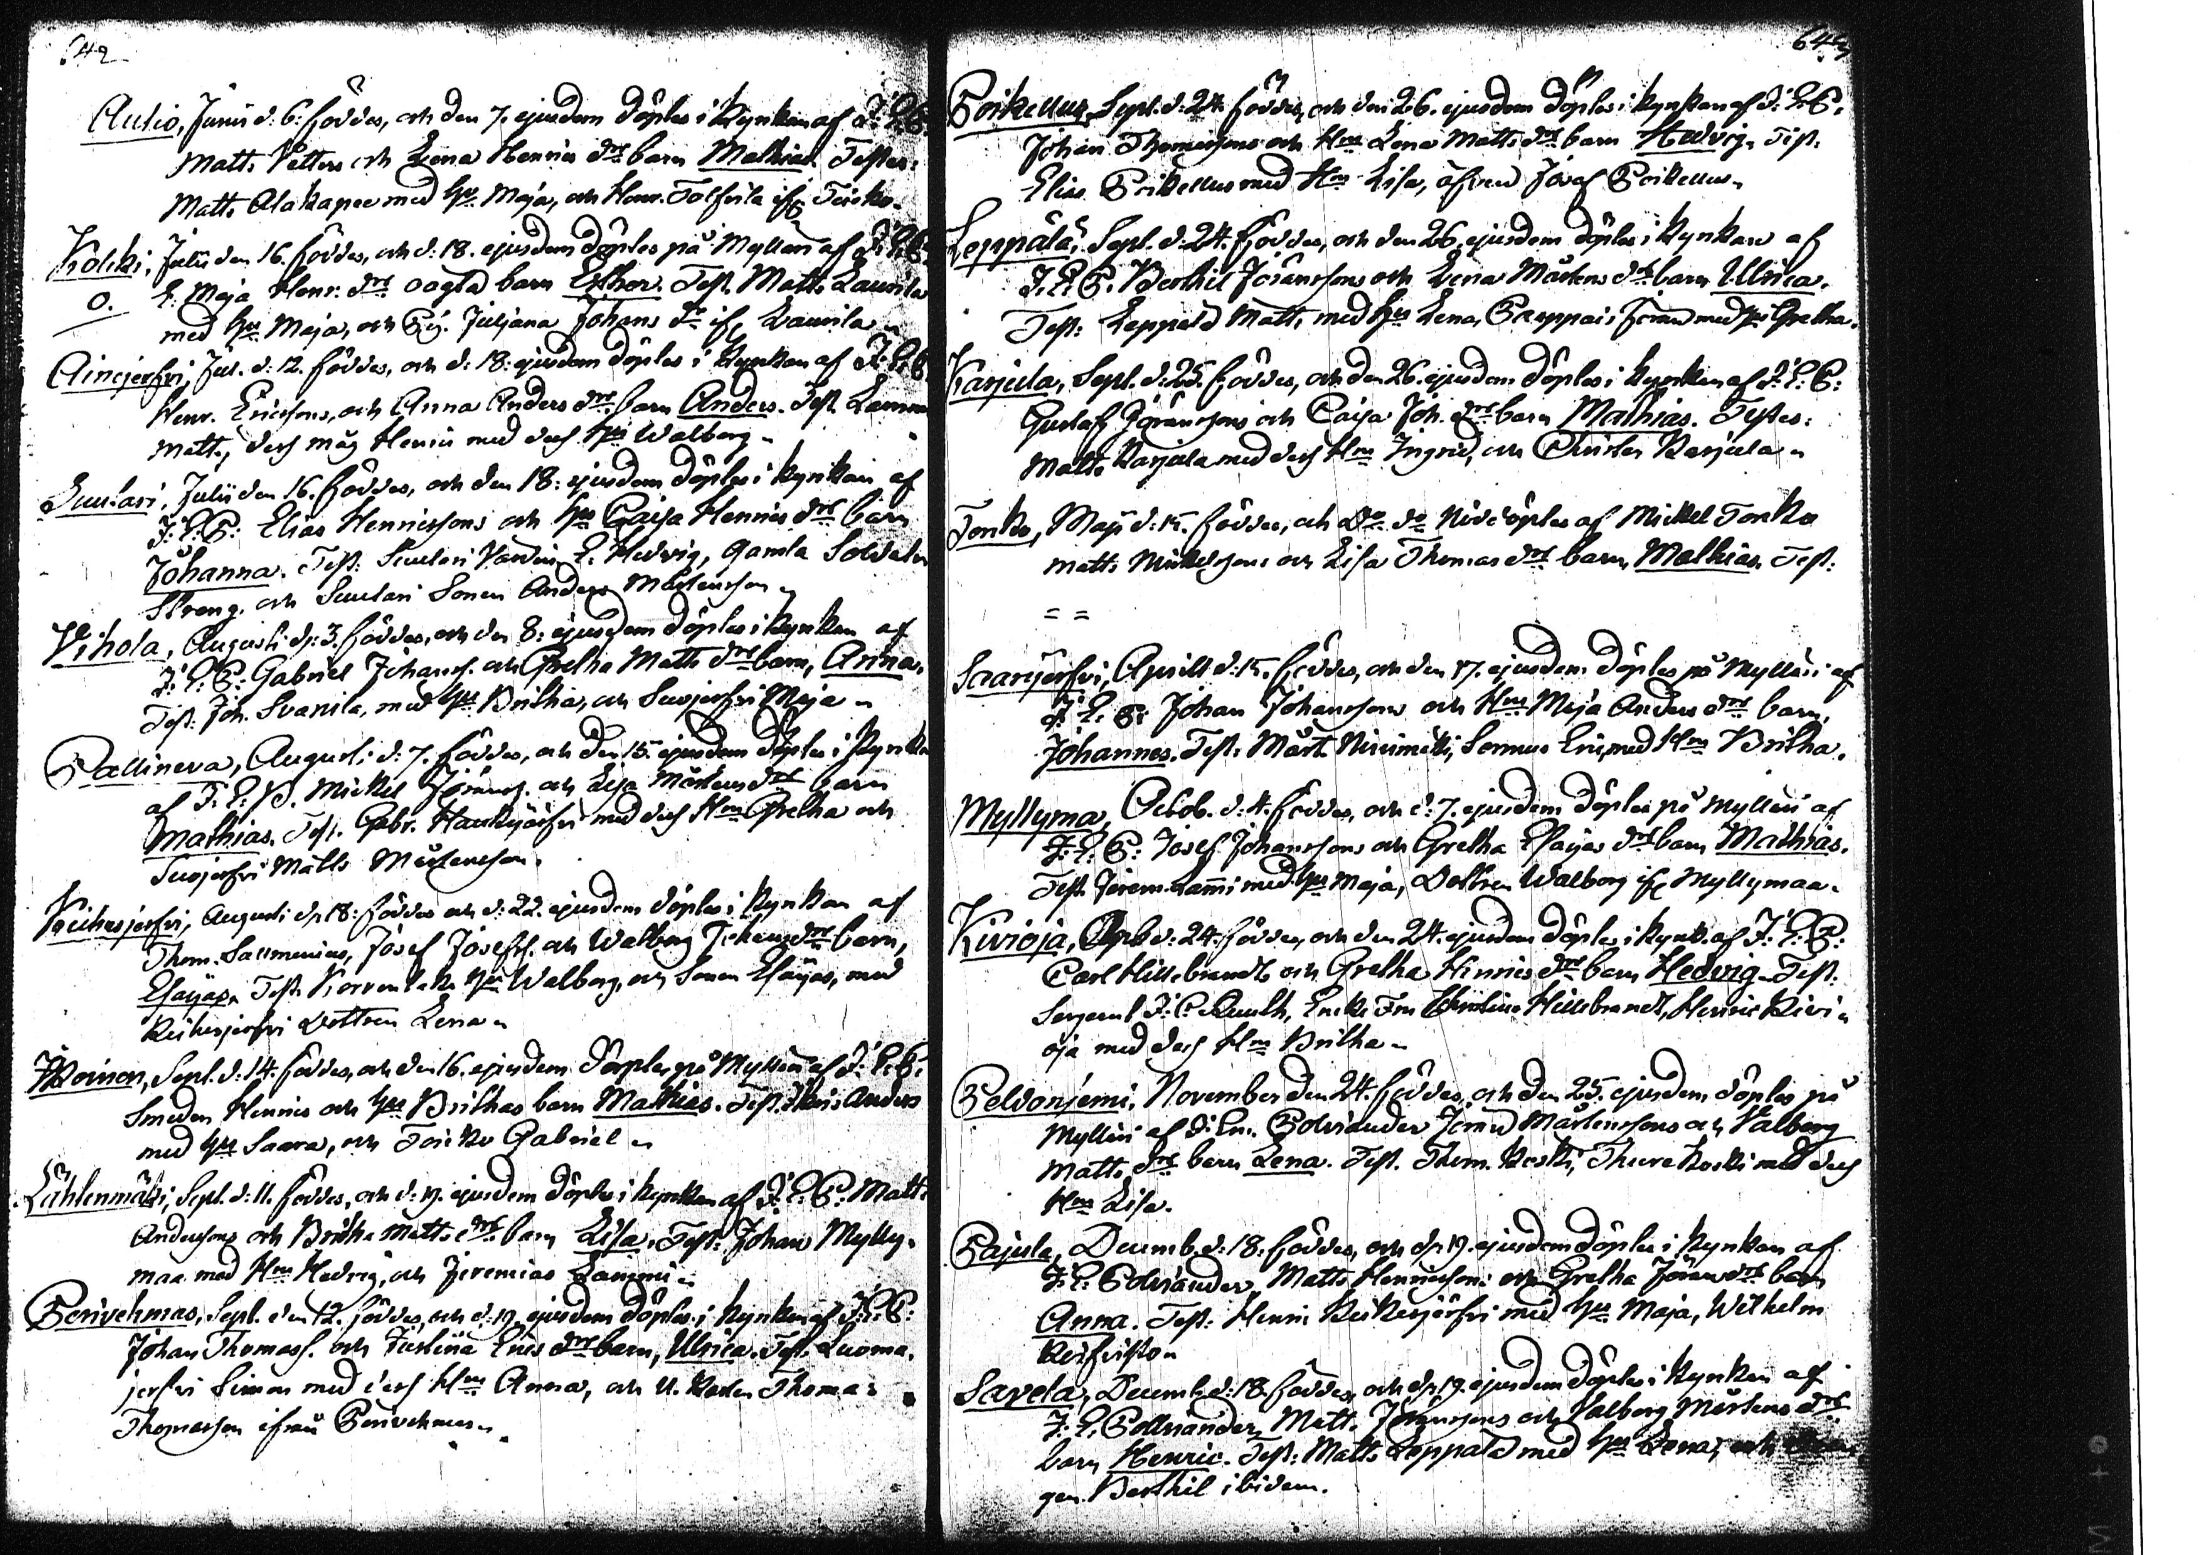 642
Autio, Junii d: 6: föddes, och den 7. ejusdem döptes i Kyrkan af J: E: P:
Matts Petters och Lena Henrics dr barn Mathias. Testes:
Matts Alakapee med hu Maja, och Henr. Tolfvila if Toisko.
Kolcki, Julii den 16. föddes, och d: 18. ejusdem döptes på Mylleri af J: E: P:
O. E: Maja Henr: dr oägta barn Esther. Test. Matts Laurila
med hu Maja, och Pig. Juljana Johans dr if Laurila
Ainejerfvi, Jul. d: 12. föddes, och d: 18: ejusdem döptes i Kyrkan af J: E: P:
Henr. Ericsons, och Anna Anders dr barn Anders. Test.
Matts, des måg Henric med des hu Walborg
Suutari, Julii den 16. föddes, och den 18: ejusdem döptes i Kyrkan af
J: E: P: Elias Henricssons och hu Caisa Henrics dr barn
Johanna. Test: Suutari E. Hedvig, gamla Soldaten
Streng. och Suutari Sonen Anders Mårtensson
Vihola, Augusti d: 3. föddes, och den 8: ejusdem döptes i Kyrkan af
J: E: P: Gabriel Johanss. och Gretha Matts dr barn, Anna.
Test: Joh. Svanila, med hu Britha, och Suojerfvi Maja
Pallineva, Augusti d: 7. föddes, och den 15. ejusdem döptes i Kyrkan
af J: E: P. Mickel Jöranss. och Lisa Mårtens dr barn
Mathias. Test. Gabr. Haukijärfvi med des Hu Gretha och
Suojerfvi Matts Mårtensson.
Keikesjerfvi, Augusti d: 18: föddes och d: 22. ejusdem döptes i Kyrkan af
Thom. Sallmenius, Josef Josefss. och Walborg Johans dr barn,
Esaijas. Test. Korvenlaka hu Walborg, och Sonen Esaijas, med
Keikesjerfvi Dottren Lena
Roinon, Sept. d: 14. föddes, och den 16. ejusdem döptes på Mylleri af J: E: P:
Smeden Henrics och hu Brithas barn Mathias. Test. Anders
med hu Saara, och Toisko Gabriel
Lähtenmäki, Sept. d: 11. föddes, och d: 19. ejusdem döptes i Kyrkan af J: E: P: Matts
Anderssons och Britha Matts dr barn Lisa. Test: Johan Mylly-
maa med Hu Hedvig, och Jeremias Lammi
Perivehmas, Sept. den 12. föddes, och d: 19. ejusdem döptes i Kyrkan af J: E: P:
Johan Thomass. och Justina Erics dr barn, Ulrica. Test. Luoma-
jerfvi Simon med des Hu Anna, och U. Karlen Thomas
Thomasson ifrån Perivehmas
643
Poikellus, Sept. d: 24. föddes, och den 26. ejusdem döptes i Kyrkan af J: E: P:
Johan Thomassons och Hu Lena Matts dr barn Hedvig. Test.
Elias Poikellus med Hu Lisa, äfven Josef Poikellus
Leppälä, Sept. d. 24. föddes, och den 26. ejusdem döptes i Kyrkan af
J: E: P. Berthil Jöranssons och Lena Mårtens dr barn Ulrica.
Test: Leppälä Matts med hu Lena, Jöran med hu Gretha.
Karjula, Sept. d: 25. föddes, och den 26. ejusdem döptes i Kyrkan af J: E: P:
Gustaf Jöranssons och Caisa Joh. dr barn Mathias. Testes:
Matts Karjula med des Hu Ingrid, och Christer Karjula
Tonko, Maji d: 15. föddes, och do do Nöddöptes af Mickel Tonko
Matts Mickelssons och Lisa Thomas dr barn Mathias Test:
= =
Saarijerfvi, Aprill d: 15. föddes, och den 17. ejusdem döptes på Mylleri af
J: E: P: Johan Johanssons och Hu Maja Anders dr barn,
Johannes. Test: Mårt. Niinimäki, Sonens Eric, med Hu Britha.
Myllyma, Octob. d: 4. föddes, och d: 7. ejusdem döptes på Mylleri af
J: E: P: Josef Johanssons och Gretha Esaijas dr barn Mathias.
Test. Jerem. Lammi med hu Maja, Dottren Walborg if Myllymaa.
Kivioja, d: 24. föddes, och den 24. ejusdem döptes i Kyrk. af J: E: P:
Carl Hillebrandts och Gretha Hinrics dr barn Hedvig. Test.
Sergeant J: C: Enke Fru Christina Hillebrandt, Henric Kivi-
oja med des Hu Britha
Peldoniemi, November den 24. föddes, och den 25. ejusdem döptes på
Mylleri af J: Er. Polviander Jöran Mårtenssons och Valborg
Matts dr barn Lena. Test. Thom. Koski, Thure Koski med des
Hu Lisa.
Pajula, Decemb. d: 18. föddes, och d: 19. ejusdem döptes i Kyrkan af
J: E: Polviander, Matts Henricssons och Gretha Jörans dr barn
Anna. Test: Henric Keikesjärfvi med hu Maja, Wilhelm
Koifvisto
Savela, Decemb. d: 18. föddes, och d: 19. ejusdem döptes i Kyrkan af
J: E. Polviander, Matts Jöranssons och Valborg Mårtens dr
barn Henric. Test: Matts Leppälä med hu Lena, och
gen. Berthil ibidem.